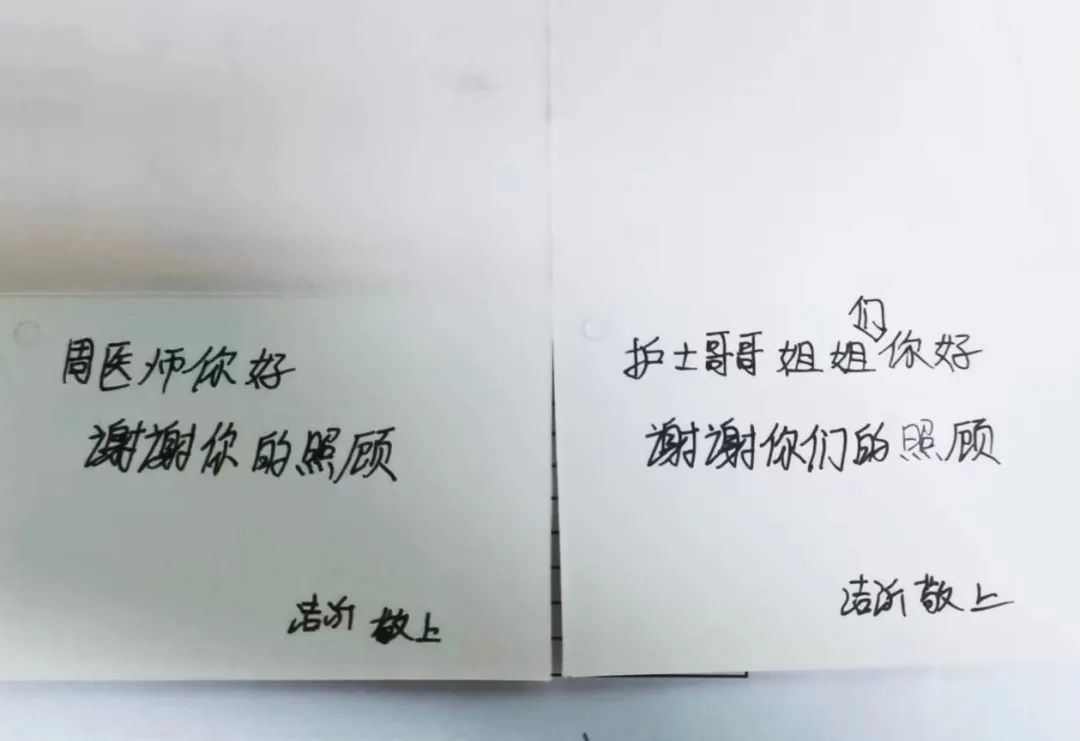 周医师你好
谢谢你的照顾
洁沂 敬上
护士哥哥姐姐们你好
谢谢你们的照顾
洁沂 敬上